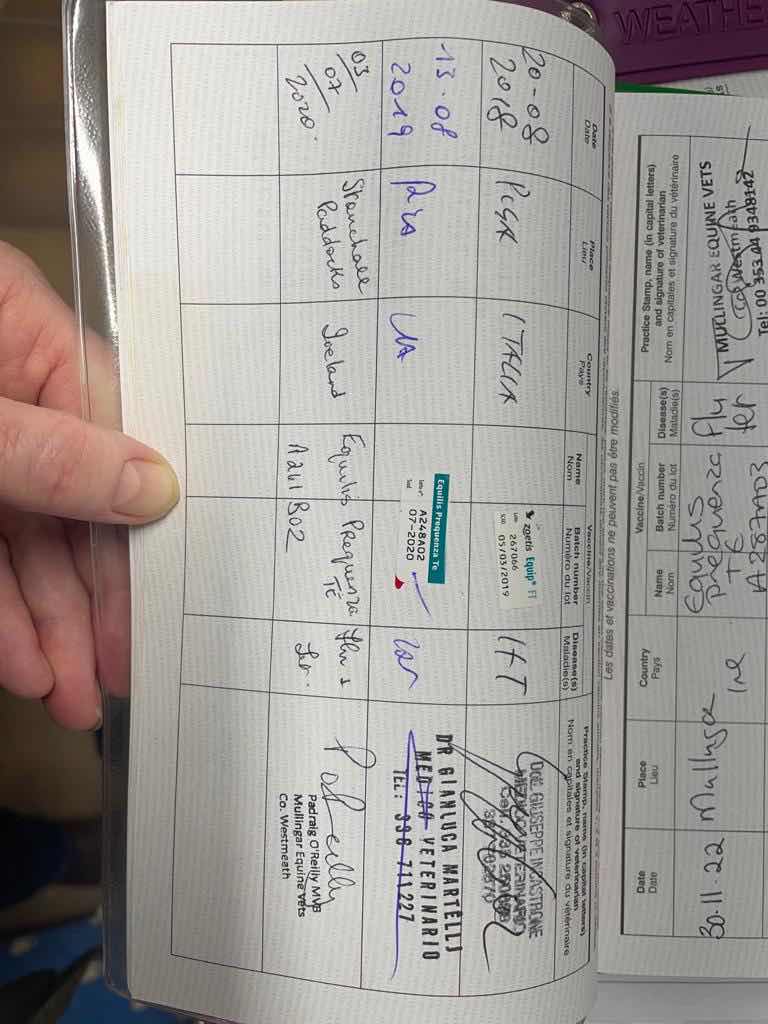 WEATHE
Date
Date
Place
Lieu
Country
Pays
Vaccine/Vaccin
Name
Nom
Batch number
Numéro du lot
Disease(s)
Maladie(s)
Practice Stamp, name (in capital letters)
and signature of veterinarian
Nom en capitales et signature du vétérinaire
20-08
2018
PISA
ITALIA
zoetis Equip® FT
267066
05/03/2019
I+T
DOTT. GIUSEPPE
MEDICO VETERINARIO
13.08
2019
Pisa
Equilis Prequenza Te
A248A02
07-2020
DR GIANLUCA MARTELLI
MEDICO VETERINARIO
TEL: 336 711227
03
07
2020.
Paddocks
Ireland
Equilis Prequenza
TE
A241B02
Flu &
Tet.
Padraig O'Reilly MVB
Mullingar Equine Vets
Co. Westmeath
Les dates et vaccinations ne peuvent pas être modifiés.
Date
Date
Place
Lieu
Country
Pays
Vaccine/Vaccin
Name
Nom
Batch number
Numéro du lot
Disease(s)
Maladie(s)
Practice Stamp, name (in capital letters)
and signature of veterinarian
Nom en capitales et signature du vétérinaire
30.11.22
Ire
Equilis
prequenza
TE
A287A03
Flu
Tet
MULLINGAR EQUINE VETS
Co. Westmeath
Tel: 00 353 44 9348142